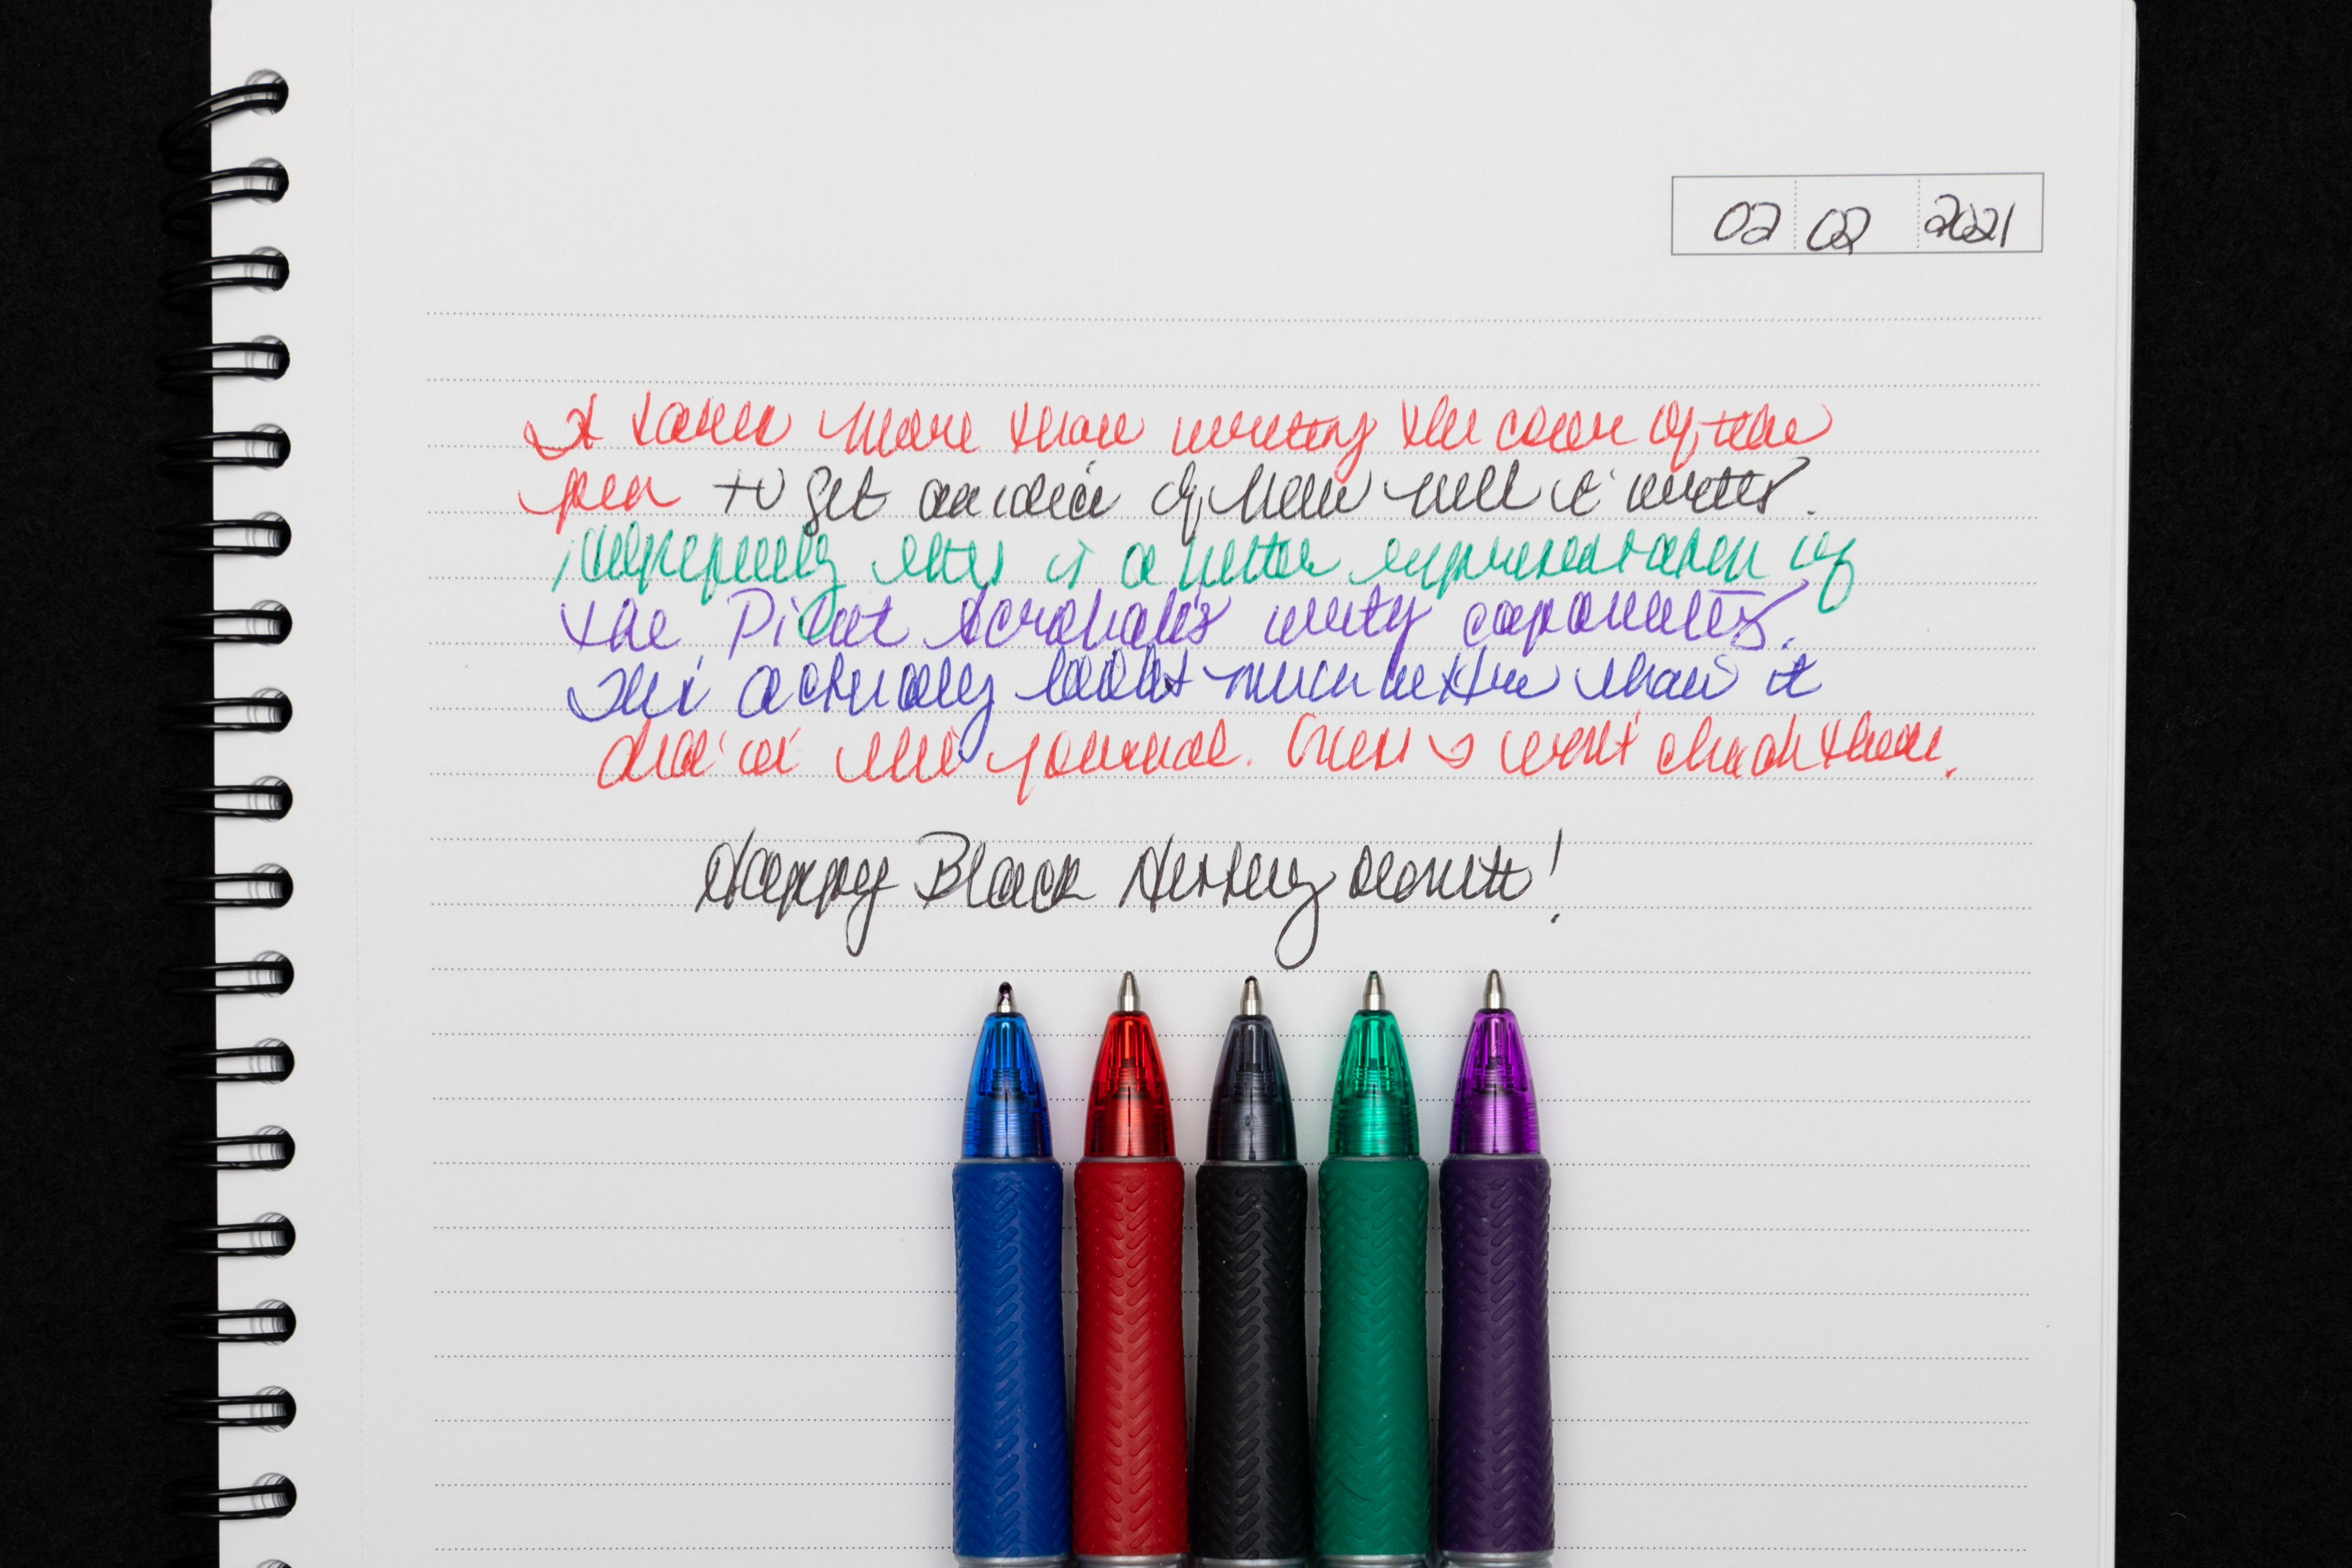 02 02 2021
It takes more than writing the color of the
pen to get an idea of how well it writes.
Hopefully this is a better representation of
the Pilot Acroball's writing capabilities.
This actually looks much better than it
did in the journal. Guess I won't check them.
Happy Black History Month!